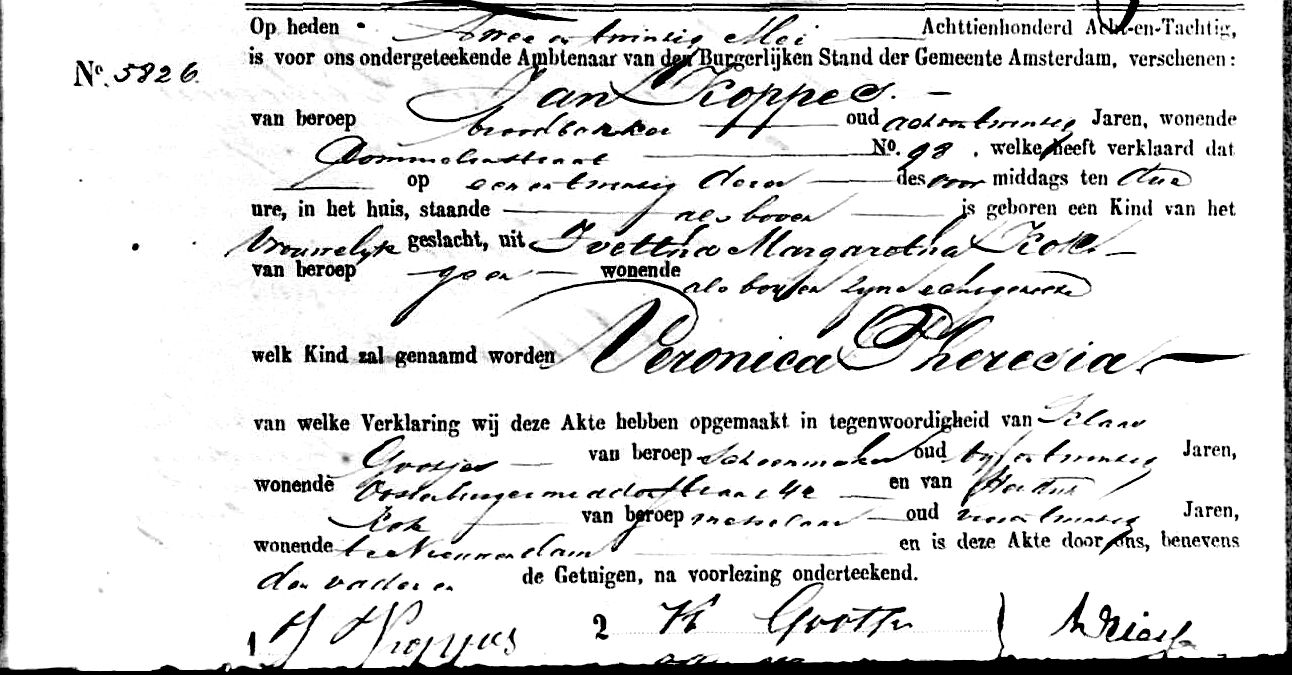 Op heden Twee en twintig Mei Achttienhonderd Acht-en-Tachtig,
is voor ons ondergeteekende Ambtenaar van den Burgerlijken Stand der Gemeente Amsterdam, verschenen:
No. 5826.
Jan Koppes.
van beroep broodbakker oud achtentwintig Jaren, wonende
Dommerstraat No. 98, welke heeft verklaard dat
op een en twintig dezer des voor middags ten drie
ure, in het huis, staande als boven is geboren een Kind van het
Vrouwelijk geslacht, uit Ivettha Margaretha Kok
van beroep geen wonende als boven zyne echtgenoote
welk Kind zal genaamd worden Veronica Theresia.
van welke Verklaring wij deze Akte hebben opgemaakt in tegenwoordigheid van Klaas
Gootjes van beroep schoenmaker oud vyfentwintig Jaren,
wonende Oostenburgermiddelstraat 42 en van
Kok van beroep metselaar oud vierentwintig Jaren,
wonende te Nieuwendam en is deze Akte door ons, benevens
den vader en de Getuigen, na voorlezing onderteekend.
J Koppes 2 K Gootjes